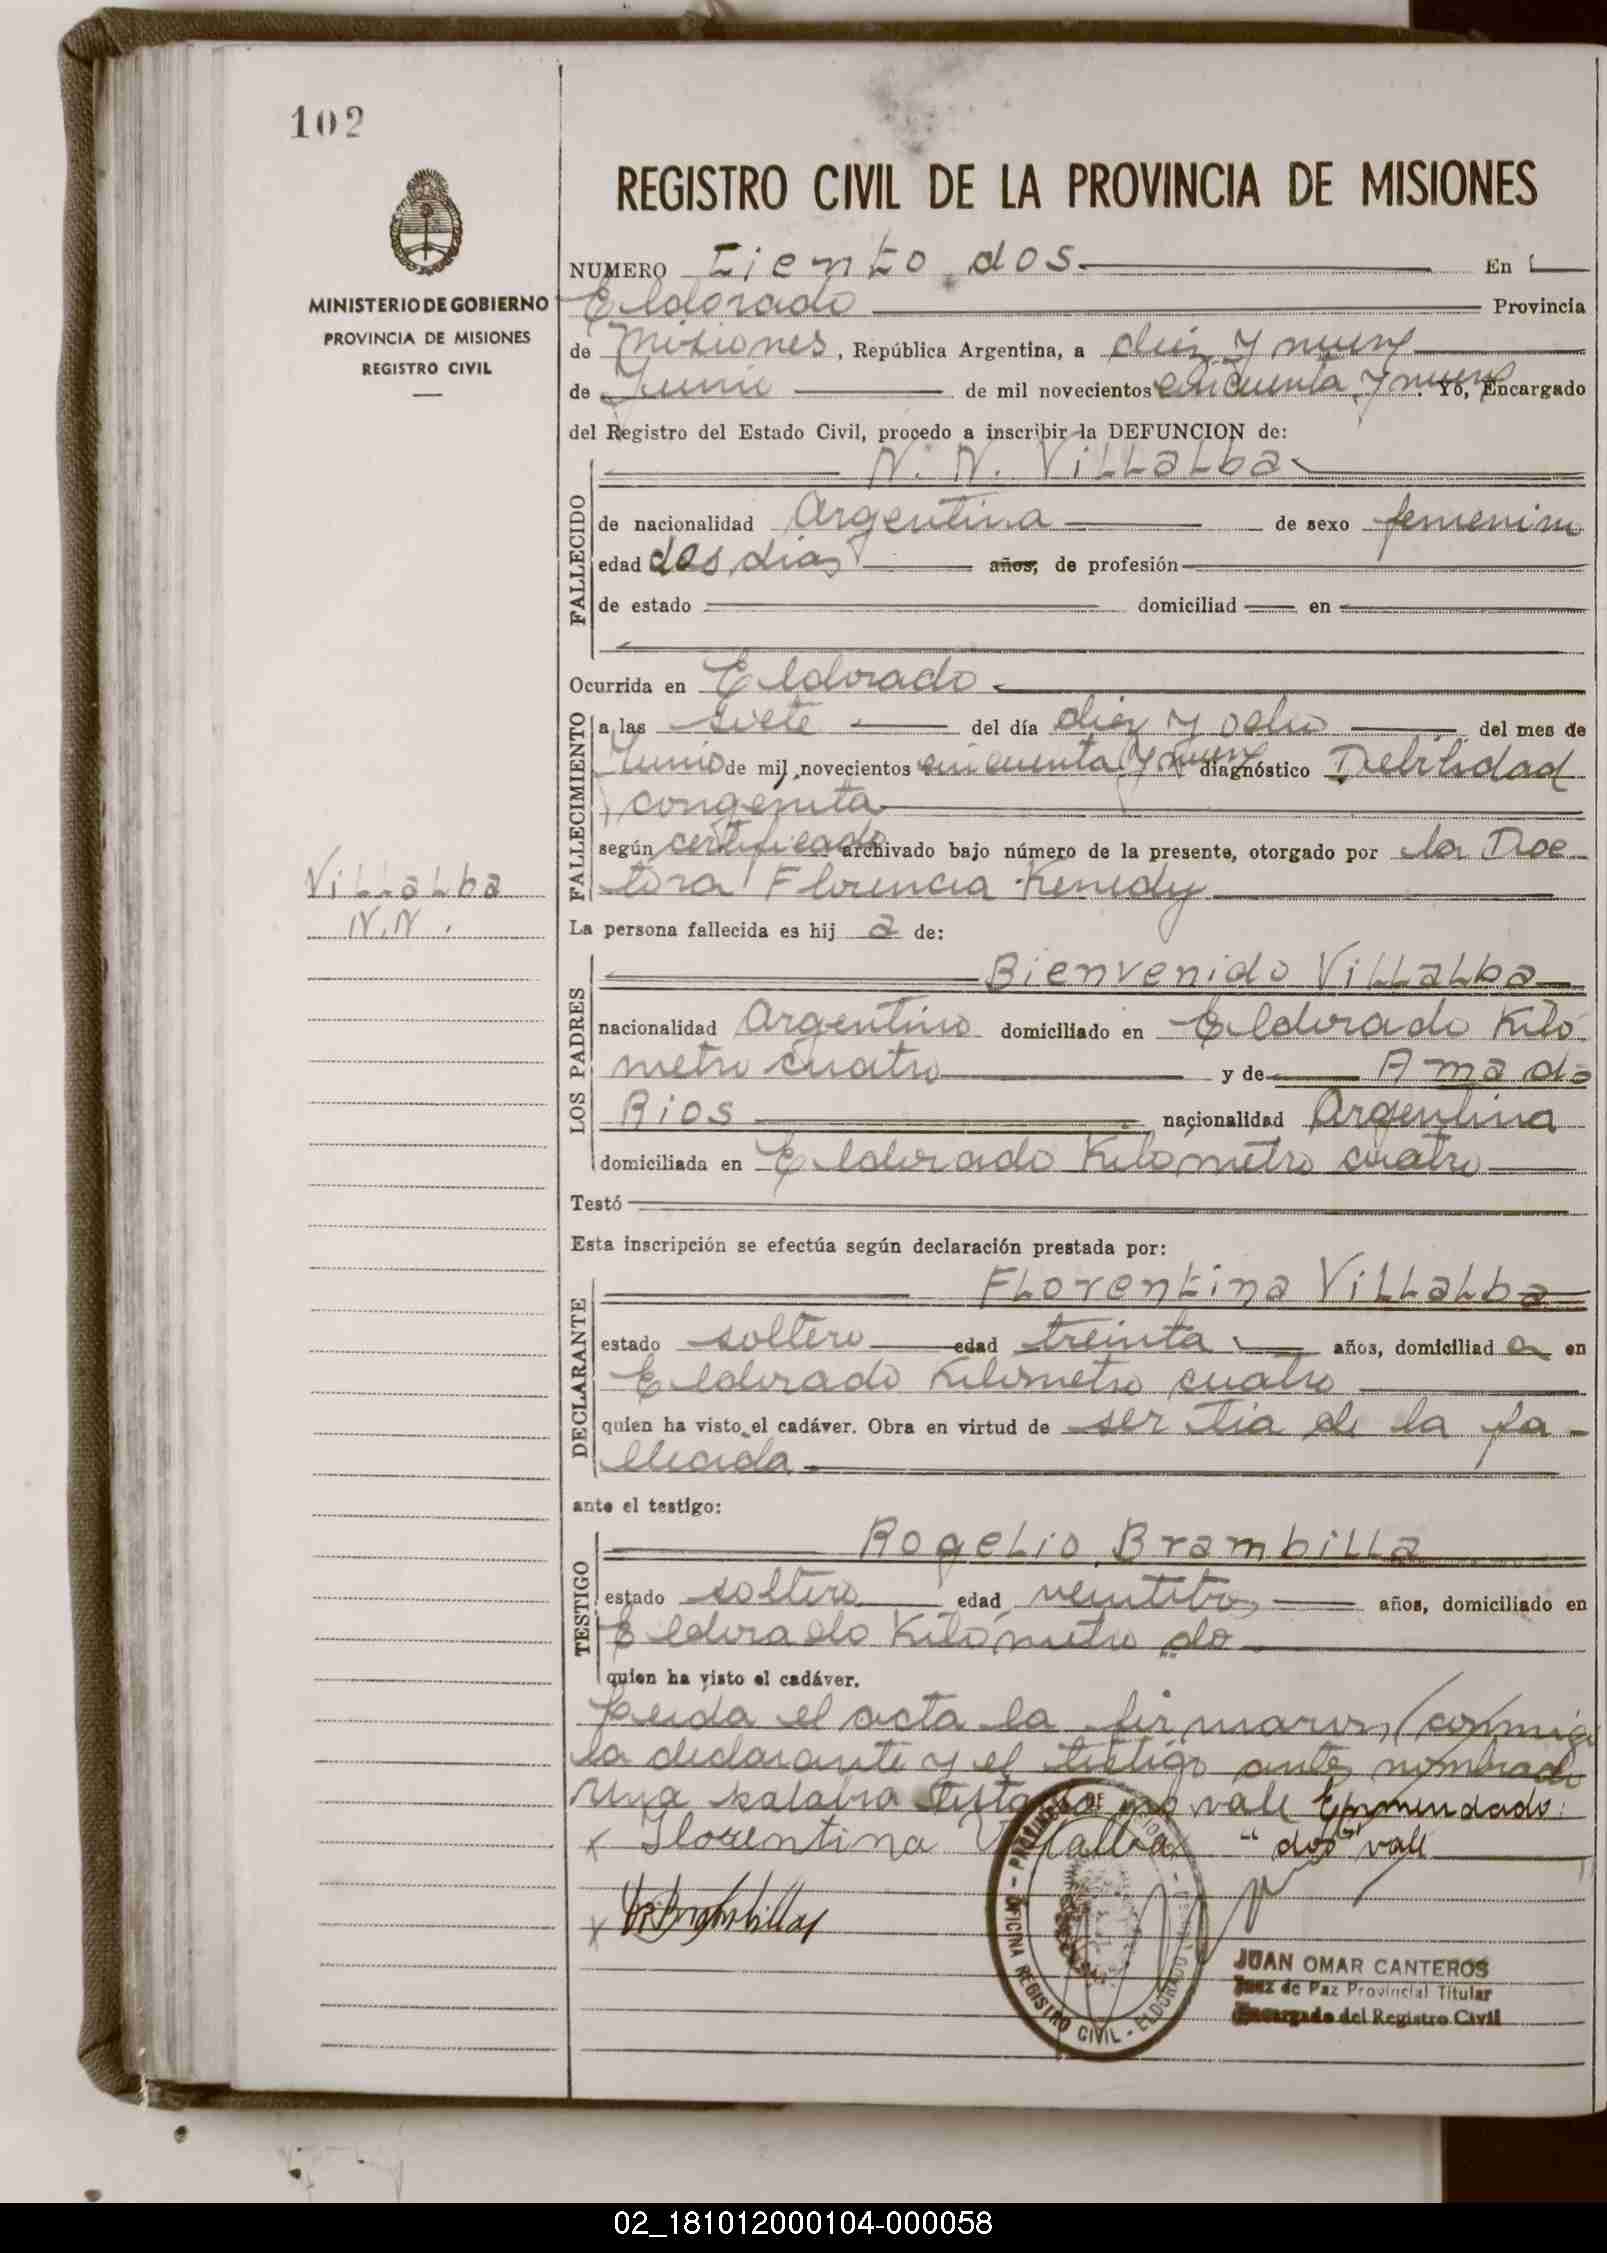 102
REGISTRO CIVIL DE LA PROVINCIA DE MISIONES
MINISTERIO DE GOBIERNO
PROVINCIA DE MISIONES
REGISTRO CIVIL
NUMERO Ciento dos En
Eldorado Provincia
de Misiones, República Argentina, a diez y nueve
de Junio de mil novecientos cincuenta y nueve. Yo, Encargado
del Registro del Estado Civil, procedo a inscribir la DEFUNCION de:
FALLECIDO
N. N. Villalba
de nacionalidad Argentina de sexo femenino
edad dos días años; de profesión
de estado domiciliad en
Ocurrida en Eldorado
FALLECIMIENTO
a las siete del día diez y ocho del mes de
Junio de mil novecientos cincuenta y nueve diagnóstico Debilidad
congenita
según certificado archivado bajo número de la presente, otorgado por la Doc
tora Florencia Kenedy
Villalba
N.N.
La persona fallecida es hij a de:
LOS PADRES
Bienvenido Villalba
nacionalidad Argentino domiciliado en Eldorado Kiló
metro cuatro y de Amada
Rios nacionalidad Argentina
domiciliada en Eldorado Kilómetro cuatro
Testó
Esta inscripción se efectúa según declaración prestada por:
DECLARANTE
Florentina Villalba
estado soltero edad treinta años, domiciliad a en
Eldorado Kilómetro cuatro
quien ha visto el cadáver. Obra en virtud de ser tia de la fa-
llecida
ante el testigo:
TESTIGO
Rogelio Brambilla
estado soltero edad veintitres años, domiciliado en
Eldorado Kilómetro dos
quien ha visto el cadáver.
Leida el acta la firmaron conmigo
la declarante y el testigo antes nombrado
Una palabra testada no vale Enmendado:
x Florentina Villalba "dos" vale
x
PROVINCIA DE MISIONES - OFICINA REGISTRO CIVIL - ELDORADO
JUAN OMAR CANTEROS
Juez de Paz Provincial Titular
Encargado del Registro Civil
02_181012000104-000058